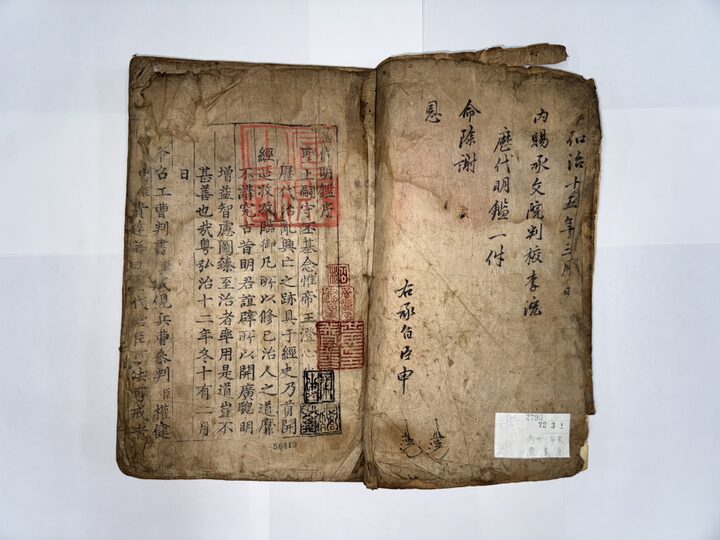 弘治十五年三月 日
內賜承文院判校李浣
歷代明鑑一件
命除謝
恩
右承旨臣申
代明鑑序
聖上嗣守丕基念惟帝王澄心
歷代治亂興亡之跡具于經史乃首開
經筵孜孜臨御凡所以修己治人之道靡
不講究古昔明君誼辟所以開廣聰明
增益智慮圖臻至治者率用是道豈不
甚善也哉粤弘治十二年冬十有二月
日
命召工曹判書臣成俔兵曹參判臣權健
2793
72 3 1